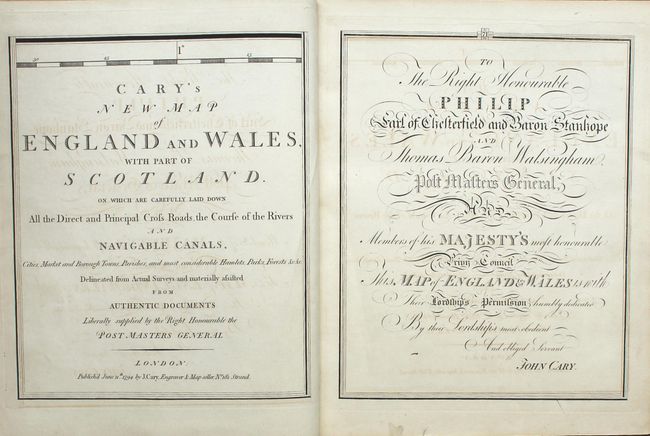 50 45 1° 45
CARY'S
NEW MAP
of
ENGLAND AND WALES,
WITH PART OF
SCOTLAND.
ON WHICH ARE CAREFULLY LAID DOWN
All the Direct and Principal Croſs Roads, the Courſe of the Rivers
AND
NAVIGABLE CANALS,
Cities, Market and Borough Towns, Pariſhes, and most conſiderable Hamlets, Parks, Forests &c. &c.
Delineated from Actual Surveys and materially aſſiſted
FROM
AUTHENTIC DOCUMENTS
Liberally supplied by the Right Honourable the
POST MASTERS GENERAL
LONDON:
Publiſh'd June 11th 1794 by J. Cary, Engraver & Map-seller No. 181 Strand.
TO
The Right Honourable
PHILIP
Earl of Cheſterfield and Baron Stanhope
AND
Thomas Baron Walsingham,
Poſt Maſters General,
AND
Members of his MAJESTY'S moſt honourable
Privy Council
This MAP of ENGLAND & WALES is with
Their Lordſhips Permiſsion humbly dedicated
By their Lordſhips most obedient
And obliged Servant
JOHN CARY.